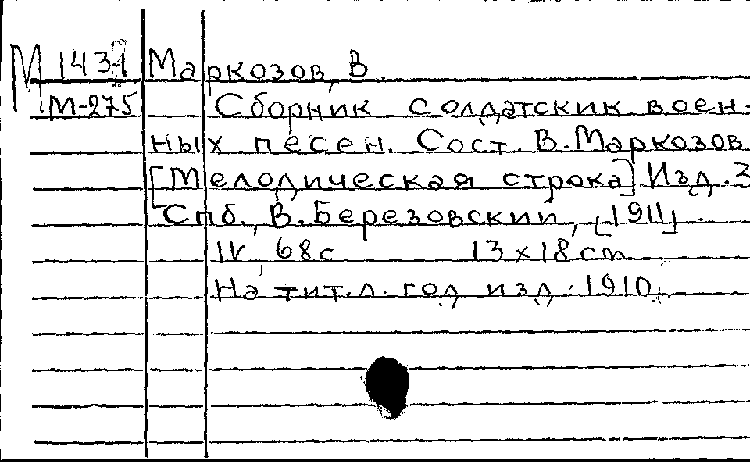 М 143-1 Маркозов, В.
М-275 Сборник солдатских воен-
ных песен. Сост. В. Маркозов
[Мелодическая строка] Изд. 3
Спб., В. Березовский, [1911].
IV, 68 с 13 x 18 cm
На тит. л. год изд. 1910.